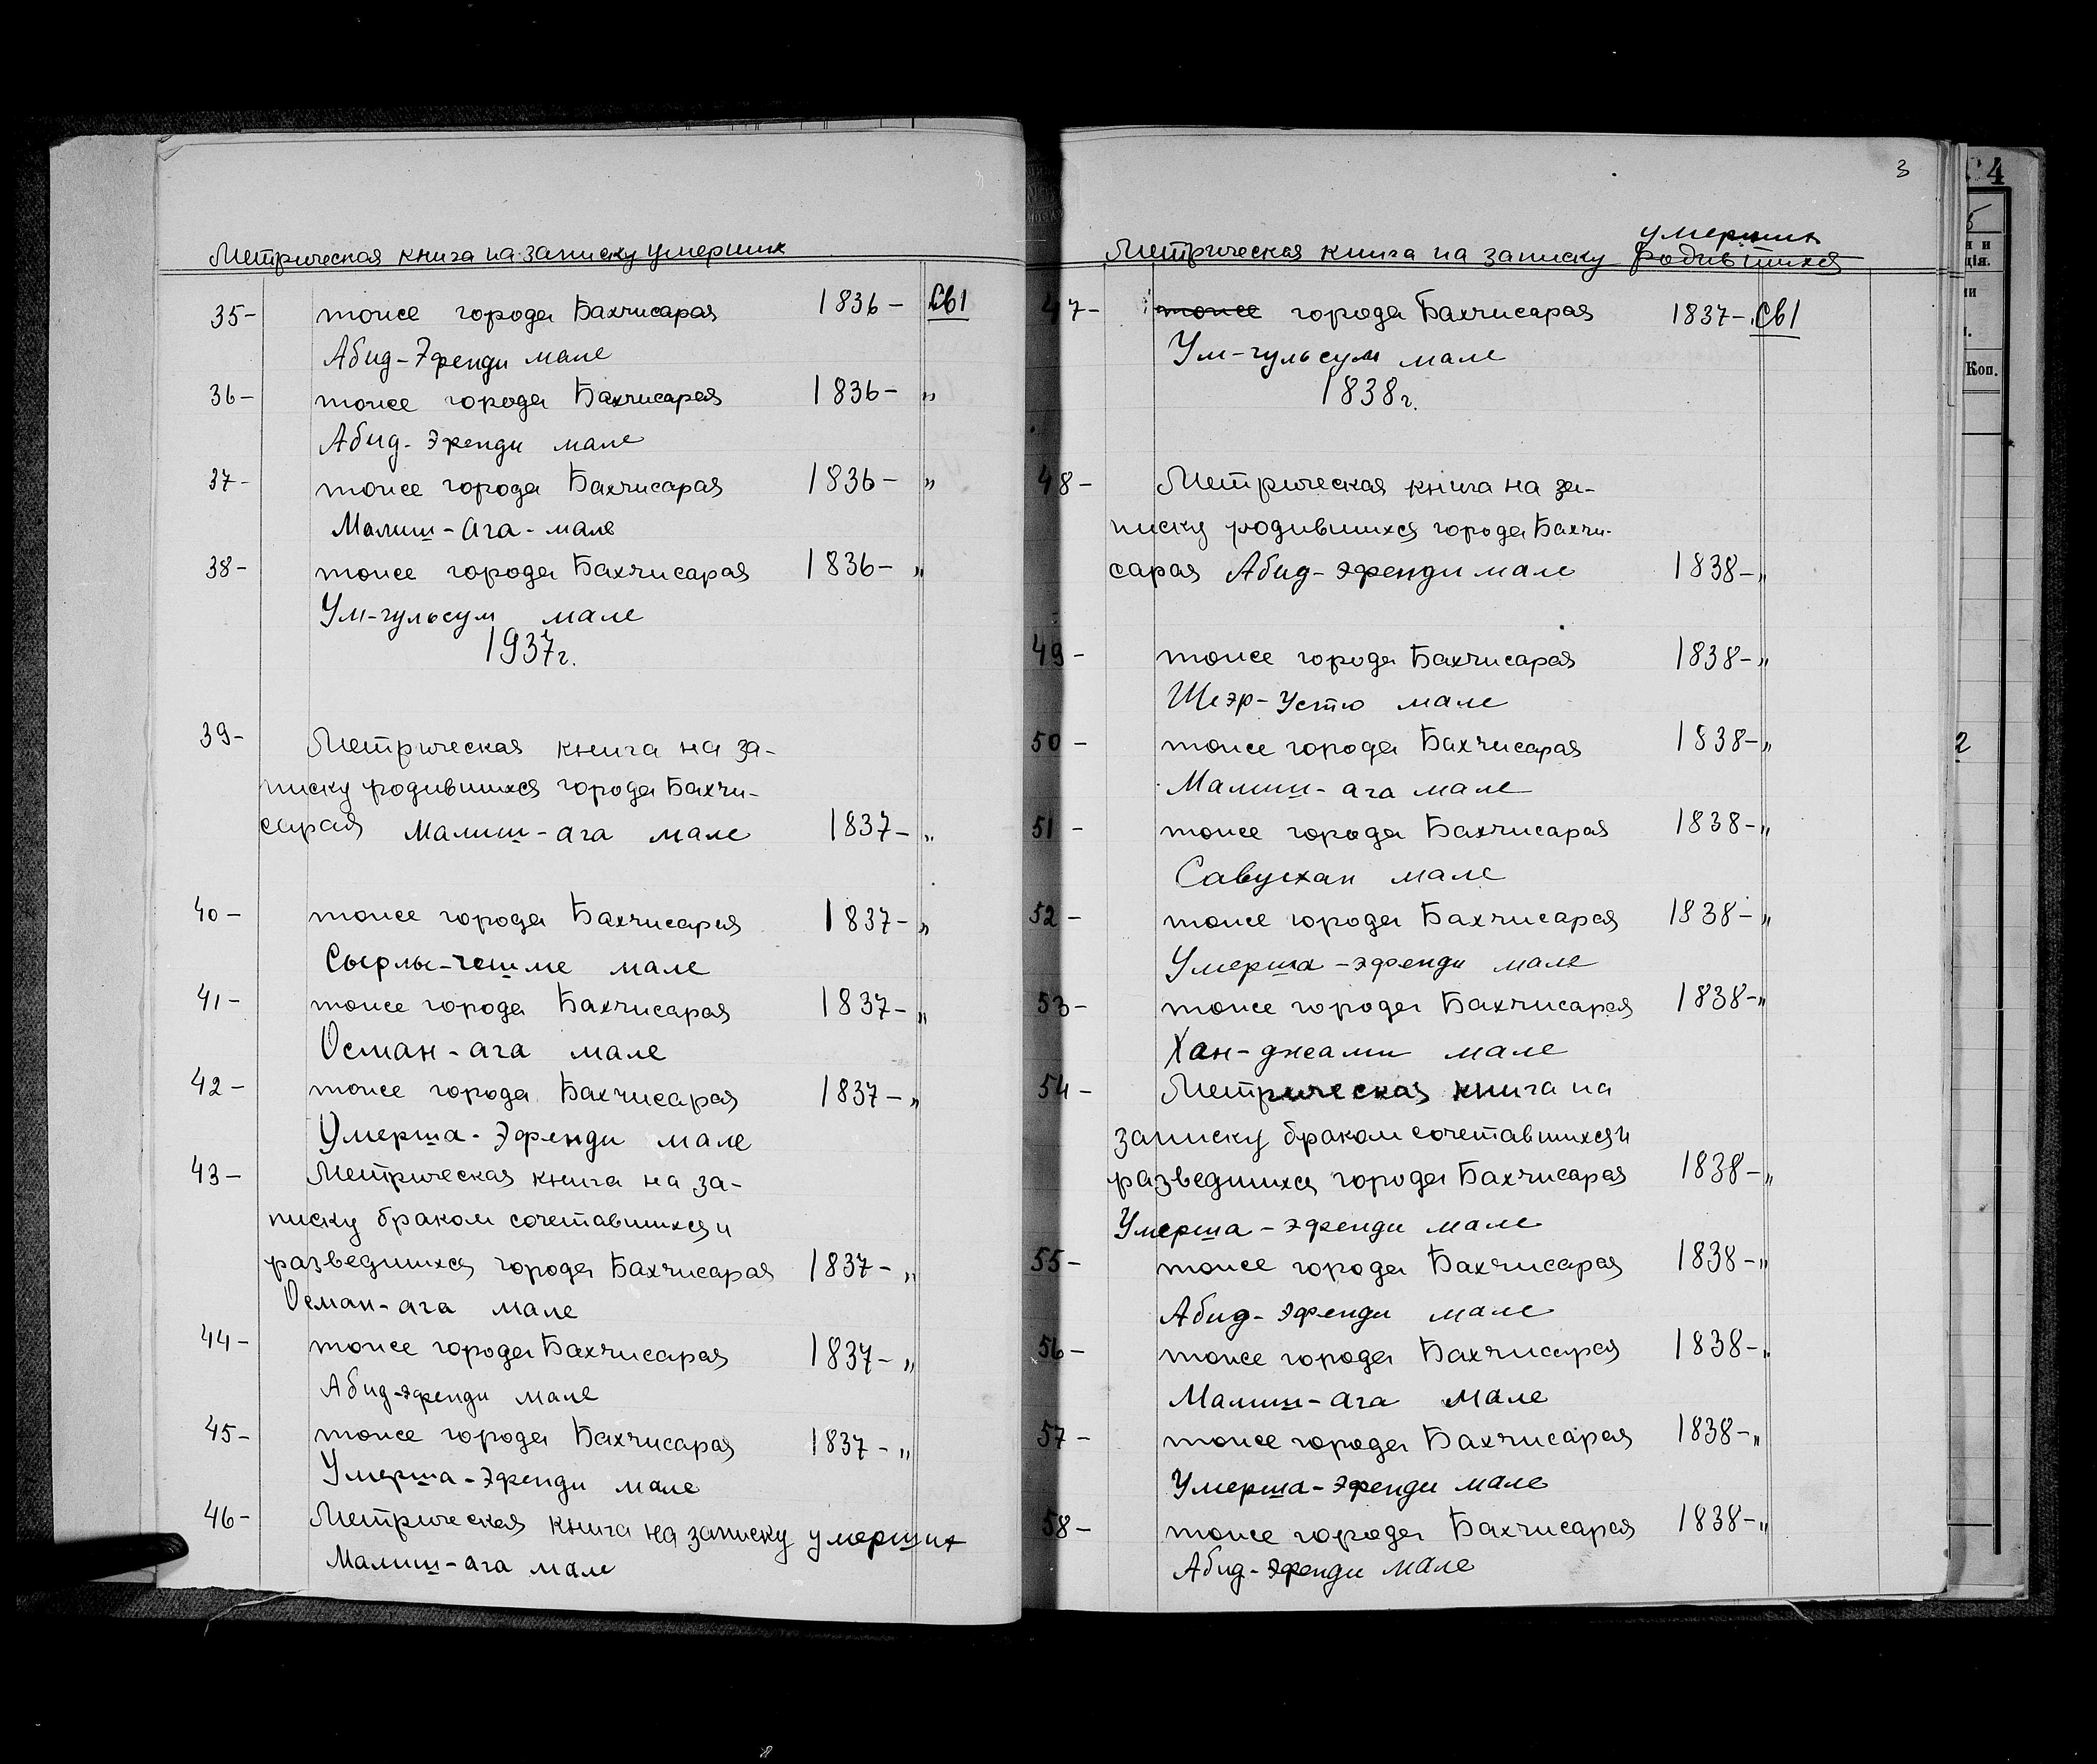 Метрическая книга на записку умерших
35- тоже города Бахчисарая 1836- Св1
Абид-Эфенди мале
36- тоже города Бахчисарая 1836- "
Абид-эфенди мале
37- тоже города Бахчисарая 1836- "
Малиш-Ага-мале
38- тоже города Бахчисарая 1836- "
Ум-гульсум мале
1937г.
39- Метрическая книга на за-
писку родившихся города Бахчи-
сарая Малиш-ага мале 1837- "
40- тоже города Бахчисарая 1837- "
Сырлы-чешме мале
41- тоже города Бахчисарая 1837- "
Осман-ага мале
42- тоже города Бахчисарая 1837- "
Умерша-Эфенди мале
43- Метрическая книга на за-
писку браком сочетавшихся и
разведшихся города Бахчисарая 1837- "
Осман-ага мале
44- тоже города Бахчисарая 1837- "
Абид-эфенди мале
45- тоже города Бахчисарая 1837- "
Умерша-Эфенди мале
46- Метрическая книга на записку умерших
Малиш-ага мале
3
умерших
Метрическая книга на записку родившихся
47- тоже города Бахчисарая 1837- Св1
Ум-гульсум мале
1838г.
48- Метрическая книга на за-
писку родившихся города Бахчи-
сарая Абид-эфенди мале 1838- "
49- тоже города Бахчисарая 1838- "
Шеэр-Устю мале
50- тоже города Бахчисарая 1838- "
Малиш-ага мале
51- тоже города Бахчисарая 1838- "
Савускан мале
52- тоже города Бахчисарая 1838- "
Умерша-эфенди мале
53- тоже города Бахчисарая 1838- "
Хан-джами мале
54- Метрическая книга на
записку браком сочетавшихся и
разведшихся города Бахчисарая 1838- "
Умерша-эфенди мале
55- тоже города Бахчисарая 1838- "
Абид-эфенди мале
56- тоже города Бахчисарая 1838- "
Малиш-ага мале
57- тоже города Бахчисарая 1838- "
Умерша-эфенди мале
58- тоже города Бахчисарая 1838- "
Абид-эфенди мале
4
Коп.
2